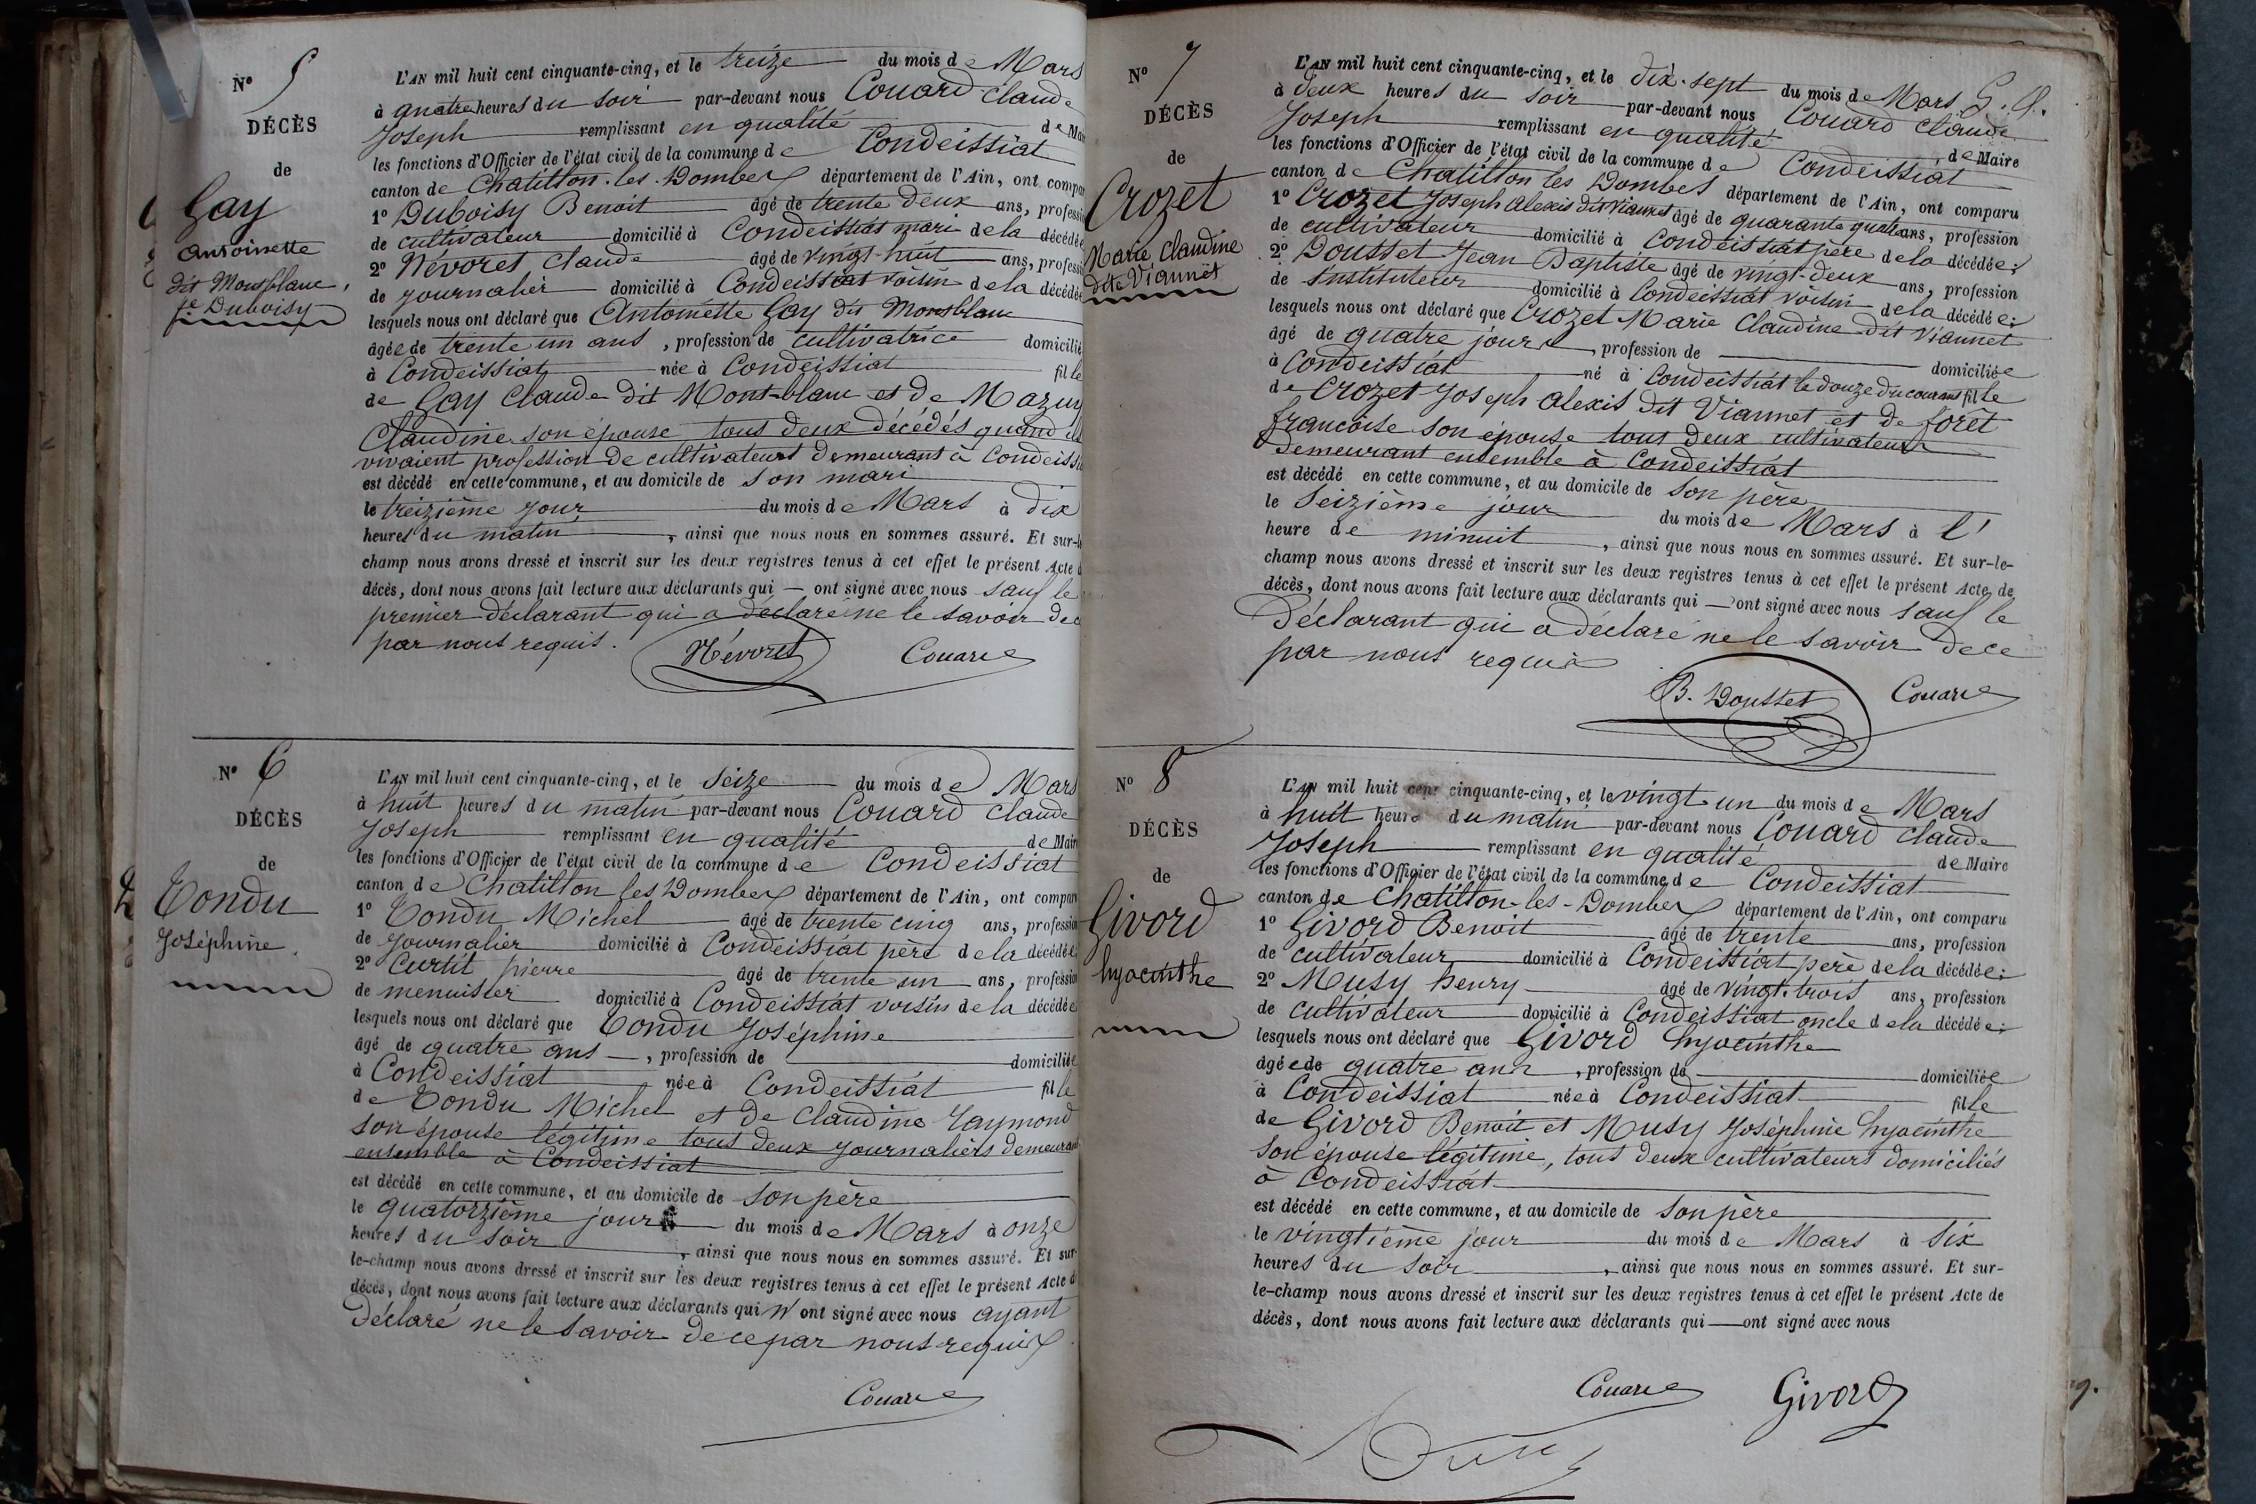 N° 5
DÉCÈS
de
Gay
Antoinette
dit Montblanc,
fe Duboisy
L'AN mil huit cent cinquante-cinq, et le treize du mois de Mars
à quatre heures du soir par-devant nous Couard Claude
Joseph remplissant en qualité de Mai
les fonctions d'Officier de l'état civil de la commune de Condeissiat
canton de Chatillon-les-Dombes département de l'Ain, ont compa
1° Duboisy Benoit âgé de trente deux ans, professi
de cultivateur domicilié à Condeissiat mari de la décédée
2° Névoret Claude âgé de vingt-huit ans, professi
de journalier domicilié à Condeissiat voisin de la décédée
lesquels nous ont déclaré que Antoinette Gay dit Montblanc
âgée de trente un ans, profession de cultivatrice domicilié
à Condeissiat née à Condeissiat fille
de Gay Claude dit Mont-blanc et de Mazuy
Claudine son épouse tous deux décédés quand ils
vivaient profession de cultivateurs demeurant à Condeissi
est décédé en cette commune, et au domicile de son mari
le treizième jour du mois de Mars à dix
heures du matin, ainsi que nous nous en sommes assuré. Et sur-le
champ nous avons dressé et inscrit sur les deux registres tenus à cet effet le présent Acte d
décès, dont nous avons fait lecture aux déclarants qui — ont signé avec nous sauf le
premier déclarant qui a déclaré ne le savoir de c
par nous requis.
Névoret Couard
N° 6
DÉCÈS
de
Tondu
Joséphine
L'AN mil huit cent cinquante-cinq, et le seize du mois de Mars
à huit heures du matin par-devant nous Couard Claude
Joseph remplissant en qualité de Mair
les fonctions d'Officier de l'état civil de la commune de Condeissiat
canton de Chatillon les Dombes département de l'Ain, ont compar
1° Tondu Michel âgé de trente cinq ans, profession
de journalier domicilié à Condeissiat père de la décédée
2° Curtil pierre âgé de trente un ans, profession
de menuisier domicilié à Condeissiat voisin de la décédée
lesquels nous ont déclaré que Tondu Joséphine
âgé de quatre ans —, profession de domiciliée
à Condeissiat née à Condeissiat fille
de Tondu Michel et de Claudine Raymond
son épouse légitime tous deux journaliers demeurant
ensemble à Condeissiat
est décédé en cette commune, et au domicile de son père
le quatorzième jour du mois de Mars à onze
heures du soir, ainsi que nous nous en sommes assuré. Et sur-
le-champ nous avons dressé et inscrit sur les deux registres tenus à cet effet le présent Acte d
décès, dont nous avons fait lecture aux déclarants qui n' ont signé avec nous ayant
déclaré ne le savoir de ce par nous requis
Couard
N° 7
DÉCÈS
de
Crozet
Marie Claudine
dite Viannet
L'AN mil huit cent cinquante-cinq, et le dix-sept du mois de Mars
à deux heures du soir par-devant nous Couard Claude
Joseph remplissant en qualité de Maire
les fonctions d'Officier de l'état civil de la commune de Condeissiat
canton de Chatillon les Dombes département de l'Ain, ont comparu
1° Crozet Joseph Alexis dit Viannet âgé de quarante quatre ans, profession
de cultivateur domicilié à Condeissiat père de la décédée;
2° Dousset Jean Baptiste âgé de vingt-deux ans, profession
de Instituteur domicilié à Condeissiat voisin de la décédée;
lesquels nous ont déclaré que Crozet Marie Claudine dit Viannet
âgé de quatre jours, profession de domiciliée
à Condeissiat né à Condeissiat le douze du courant fille
de Crozet Joseph Alexis dit Viannet et de forêt
francoise son épouse tous deux cultivateurs
demeurant ensemble à Condeissiat
est décédé en cette commune, et au domicile de son père
le seizième jour du mois de Mars à l'
heure de minuit, ainsi que nous nous en sommes assuré. Et sur-le-
champ nous avons dressé et inscrit sur les deux registres tenus à cet effet le présent Acte de
décès, dont nous avons fait lecture aux déclarants qui — ont signé avec nous sauf le
Déclarant qui a déclaré ne le savoir de ce
par nous requis
B. Dousset Couard
N° 8
DÉCÈS
de
Givord
hyacinthe
L'AN mil huit cent cinquante-cinq, et le vingt-un du mois de Mars
à huit heure du matin par-devant nous Couard Claude
Joseph remplissant en qualité de Maire
les fonctions d'Officier de l'état civil de la commune de Condeissiat
canton de Chatillon-les-Dombes département de l'Ain, ont comparu
1° Givord Benoit âgé de trente ans, profession
de cultivateur domicilié à Condeissiat père de la décédée;
2° Musy henry âgé de vingt-trois ans, profession
de cultivateur domicilié à Condeissiat oncle de la décédée;
lesquels nous ont déclaré que Givord hyacinthe
âgée de quatre ans, profession de domiciliée
à Condeissiat née à Condeissiat fille
de Givord Benoit et Musy Joséphine hyacinthe
son épouse légitime, tous deux cultivateurs domiciliés
à Condeissiat
est décédé en cette commune, et au domicile de son père
le vingtième jour du mois de Mars à six
heures du soir, ainsi que nous nous en sommes assuré. Et sur-
le-champ nous avons dressé et inscrit sur les deux registres tenus à cet effet le présent Acte de
décès, dont nous avons fait lecture aux déclarants qui — ont signé avec nous
Couard Givord